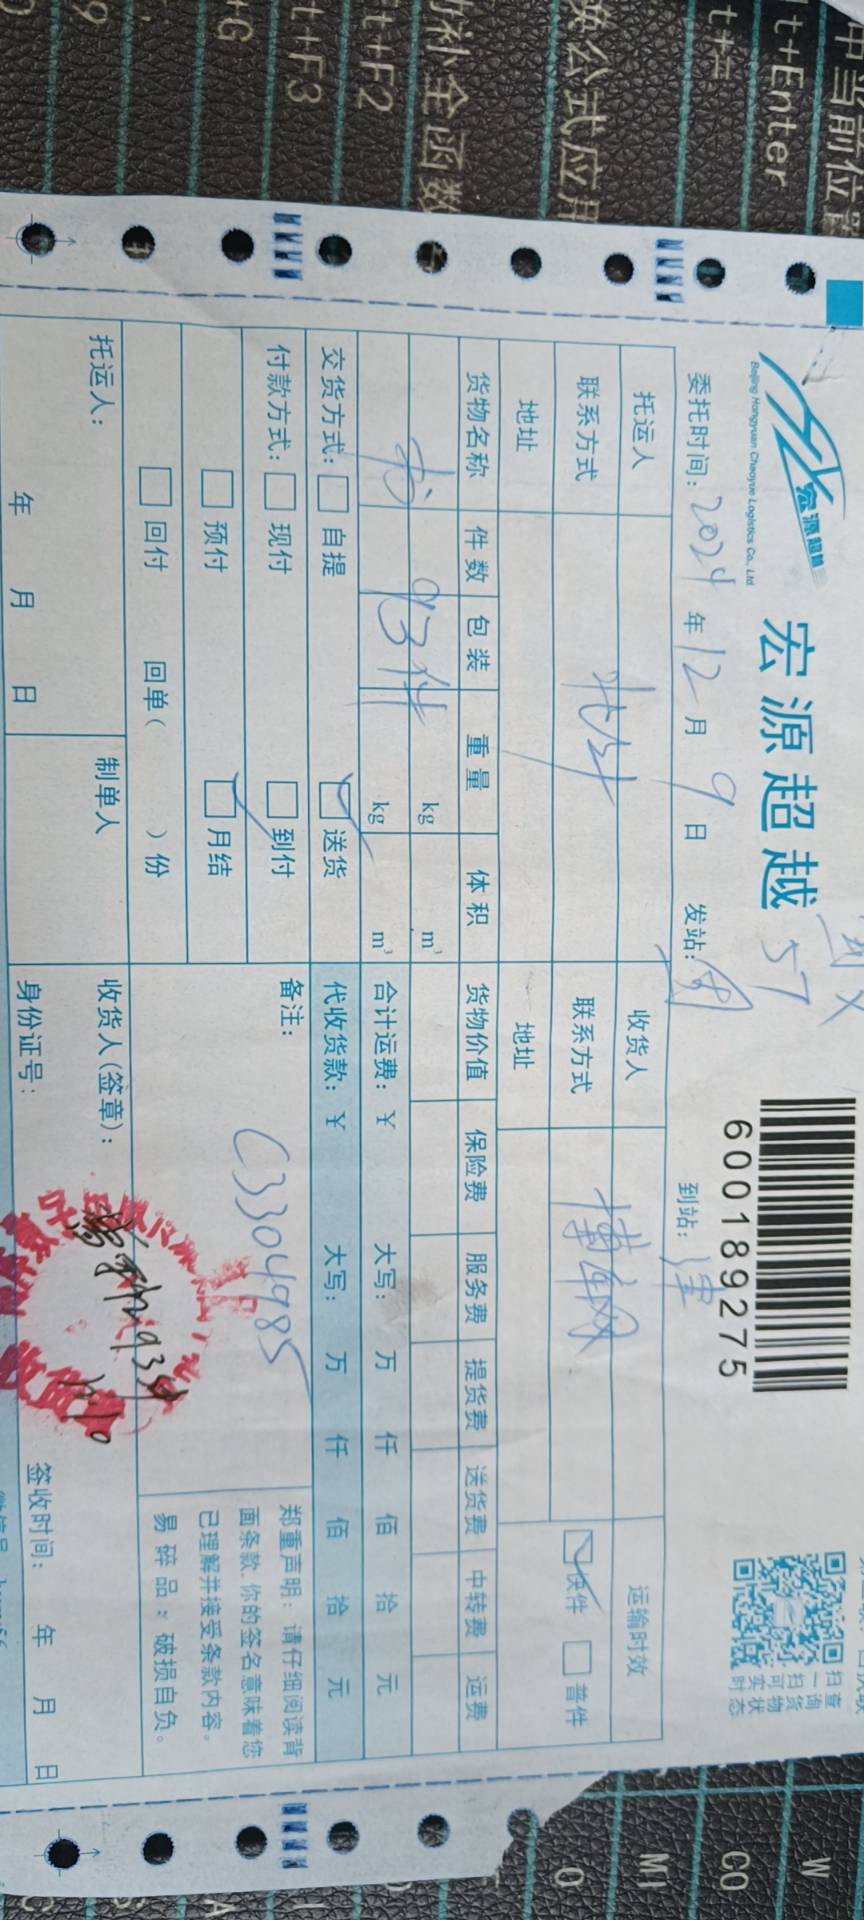 宏源超越
Beijing Hongyuan Chaoyue Logistics Co., Ltd
宏源超越 57
600189275
扫一扫可实时
查询货物状态
委托时间：2024年12月9日 发站： 到站：津
托运人 收货人 运输时效
联系方式 联系方式 快件 普件
地址 地址
货物名称 件数 包装 重量 体积 货物价值 保险费 服务费 提货费 送货费 中转费 运费
kg m³
书 93件 kg m³ 合计运费：￥ 大写： 万 仟 佰 拾 元
交货方式： 自提 送货 代收货款：￥ 大写： 万 仟 佰 拾 元
付款方式： 现付 到付 备注：
预付 月结 C3304985
回付 回单（ ）份
郑重声明：请仔细阅读背
面条款，你的签名意味着您
已理解并接受条款内容。
易碎品：破损自负。
托运人： 制单人 收货人（签章）：
年 月 日 身份证号： 签收时间： 年 月 日
中当前位置
t+Enter
换公式应用
补全函数
t+F2
t+F3
+G
W
CO
MI
O